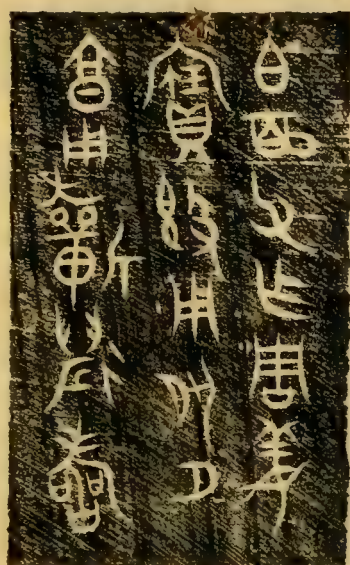 白父乍周姜
寶𣪘用夙夕
享用祈萬壽